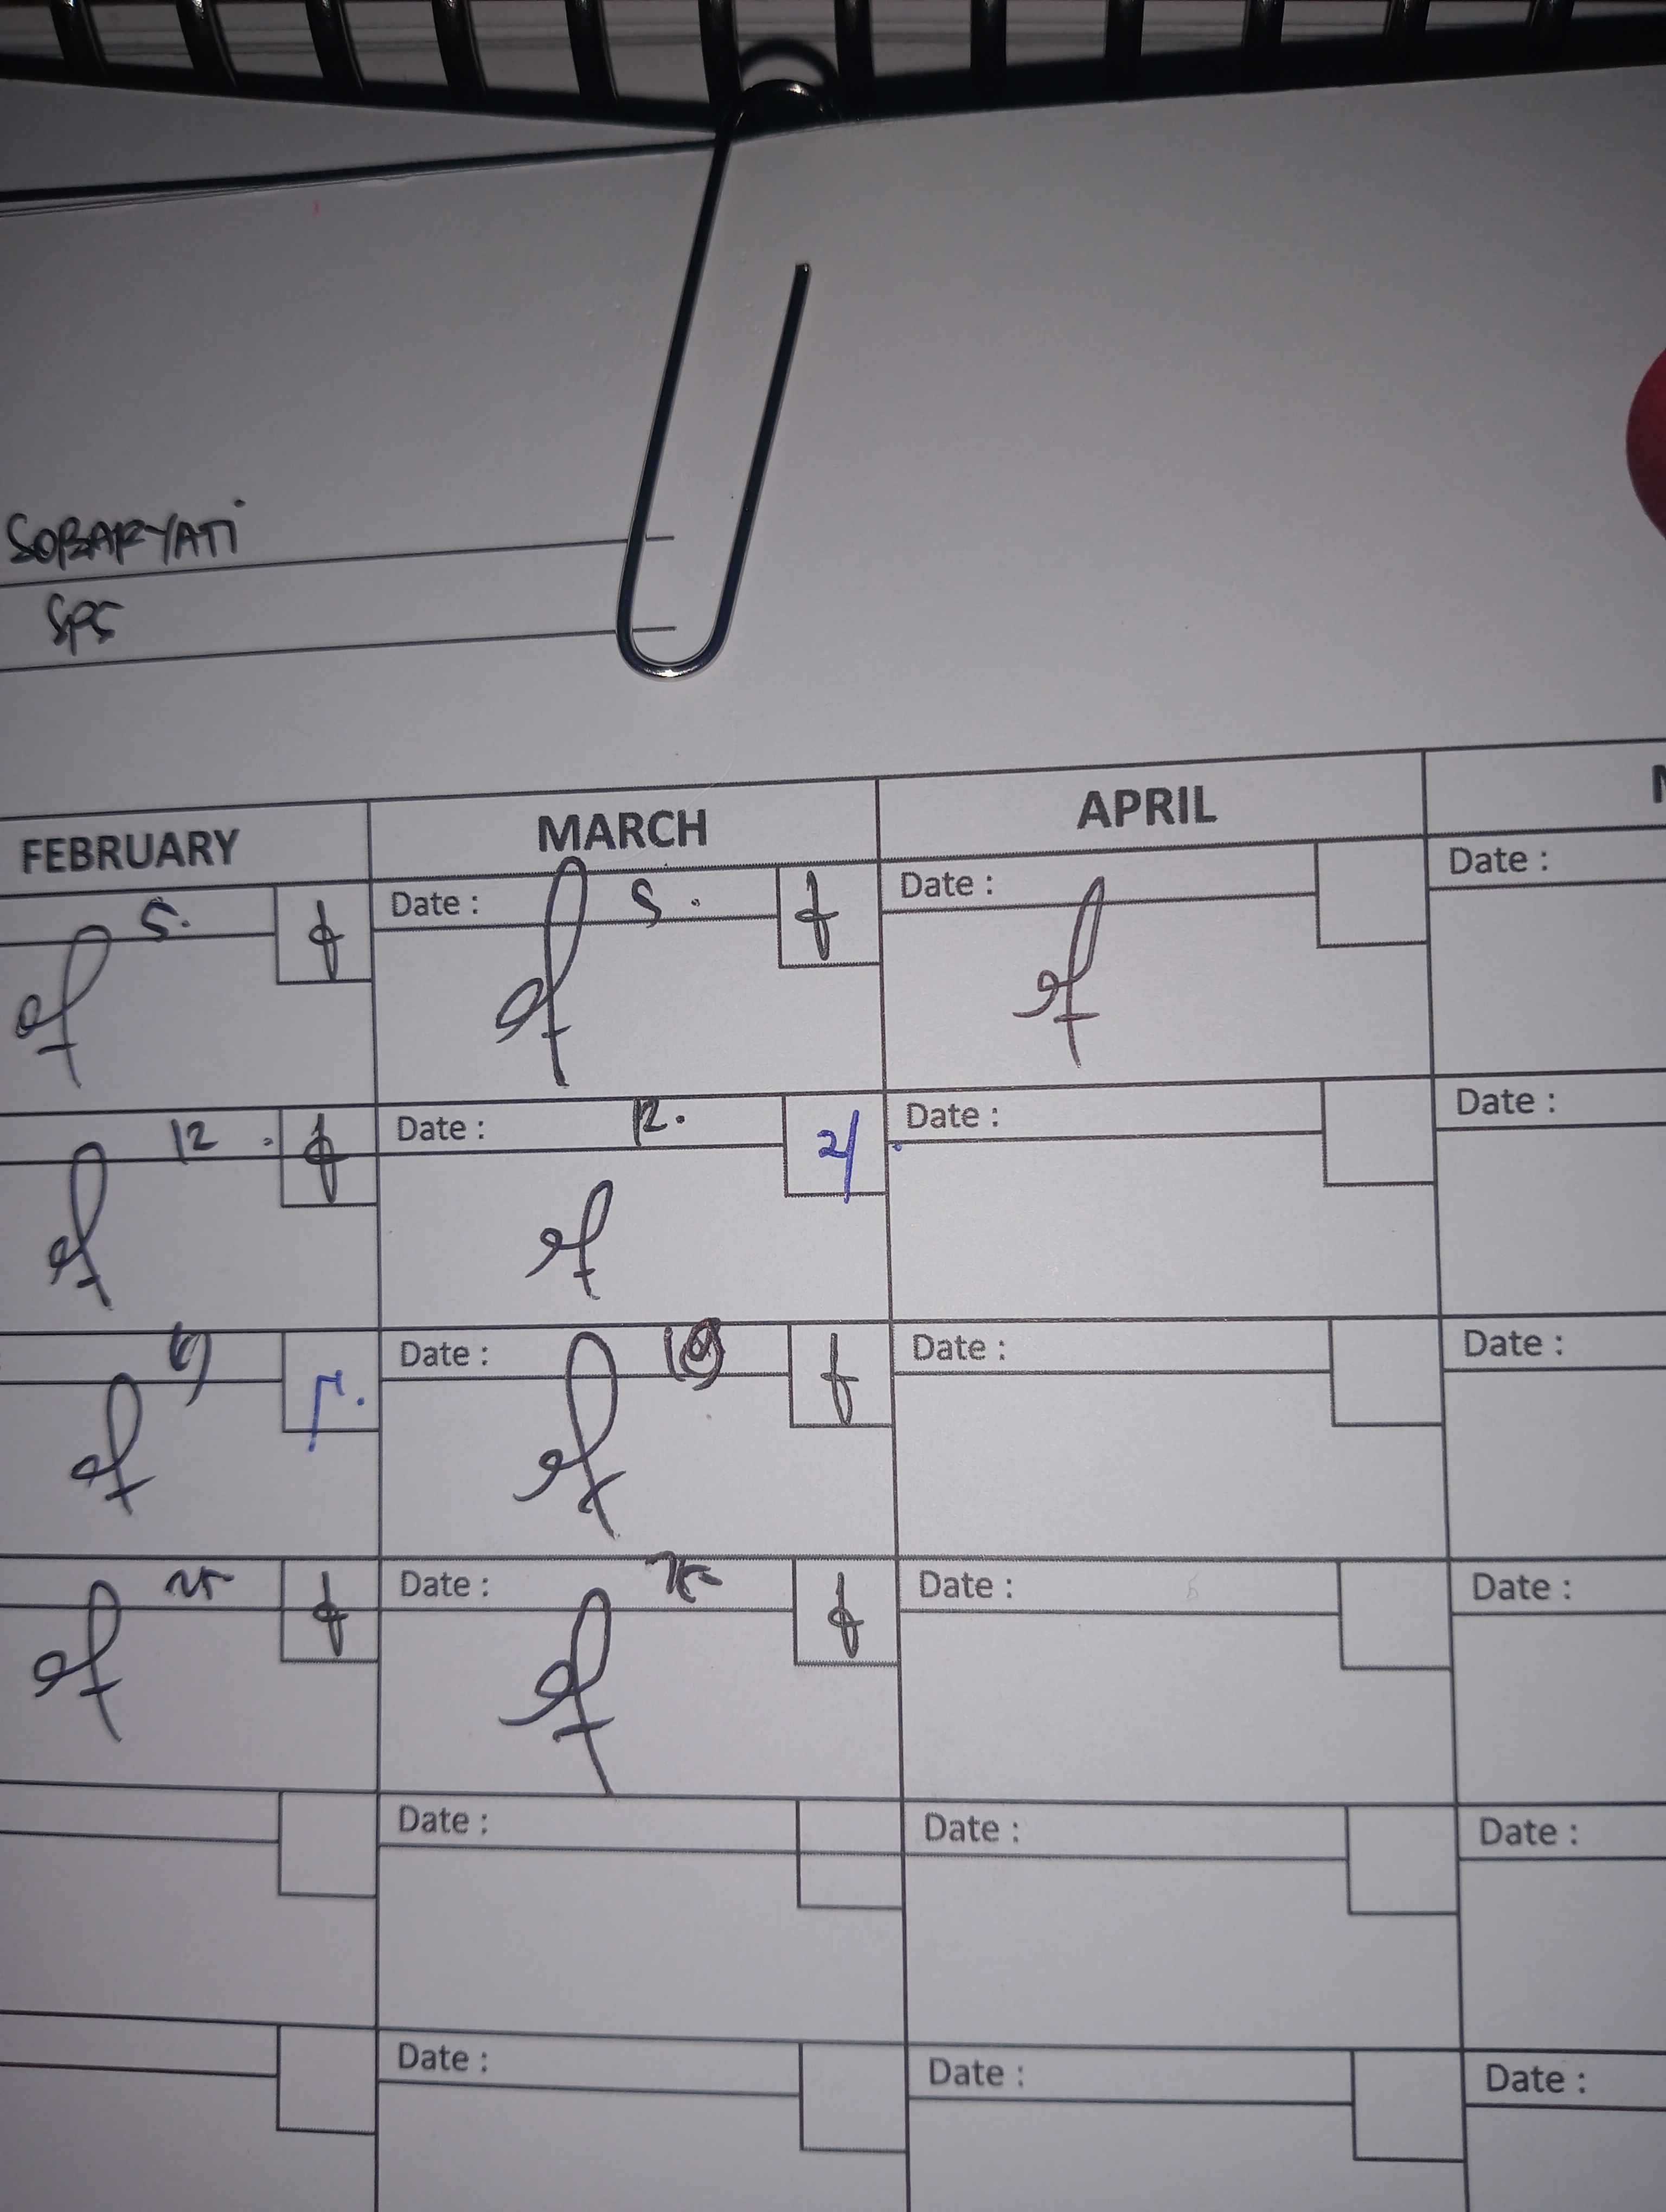 SOBARYATI
SPS
FEBRUARY MARCH APRIL
5. Date : 5. Date : Date :
12. Date : 12. Date : Date :
Date : 19 Date : Date :
25 Date : 25 Date : Date :
Date : Date : Date :
Date : Date : Date :